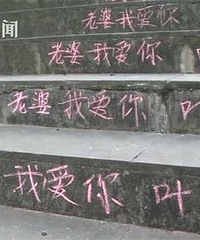 老婆我爱你
闻
老婆 我爱你
老婆 我爱你 叶
我爱你 叶